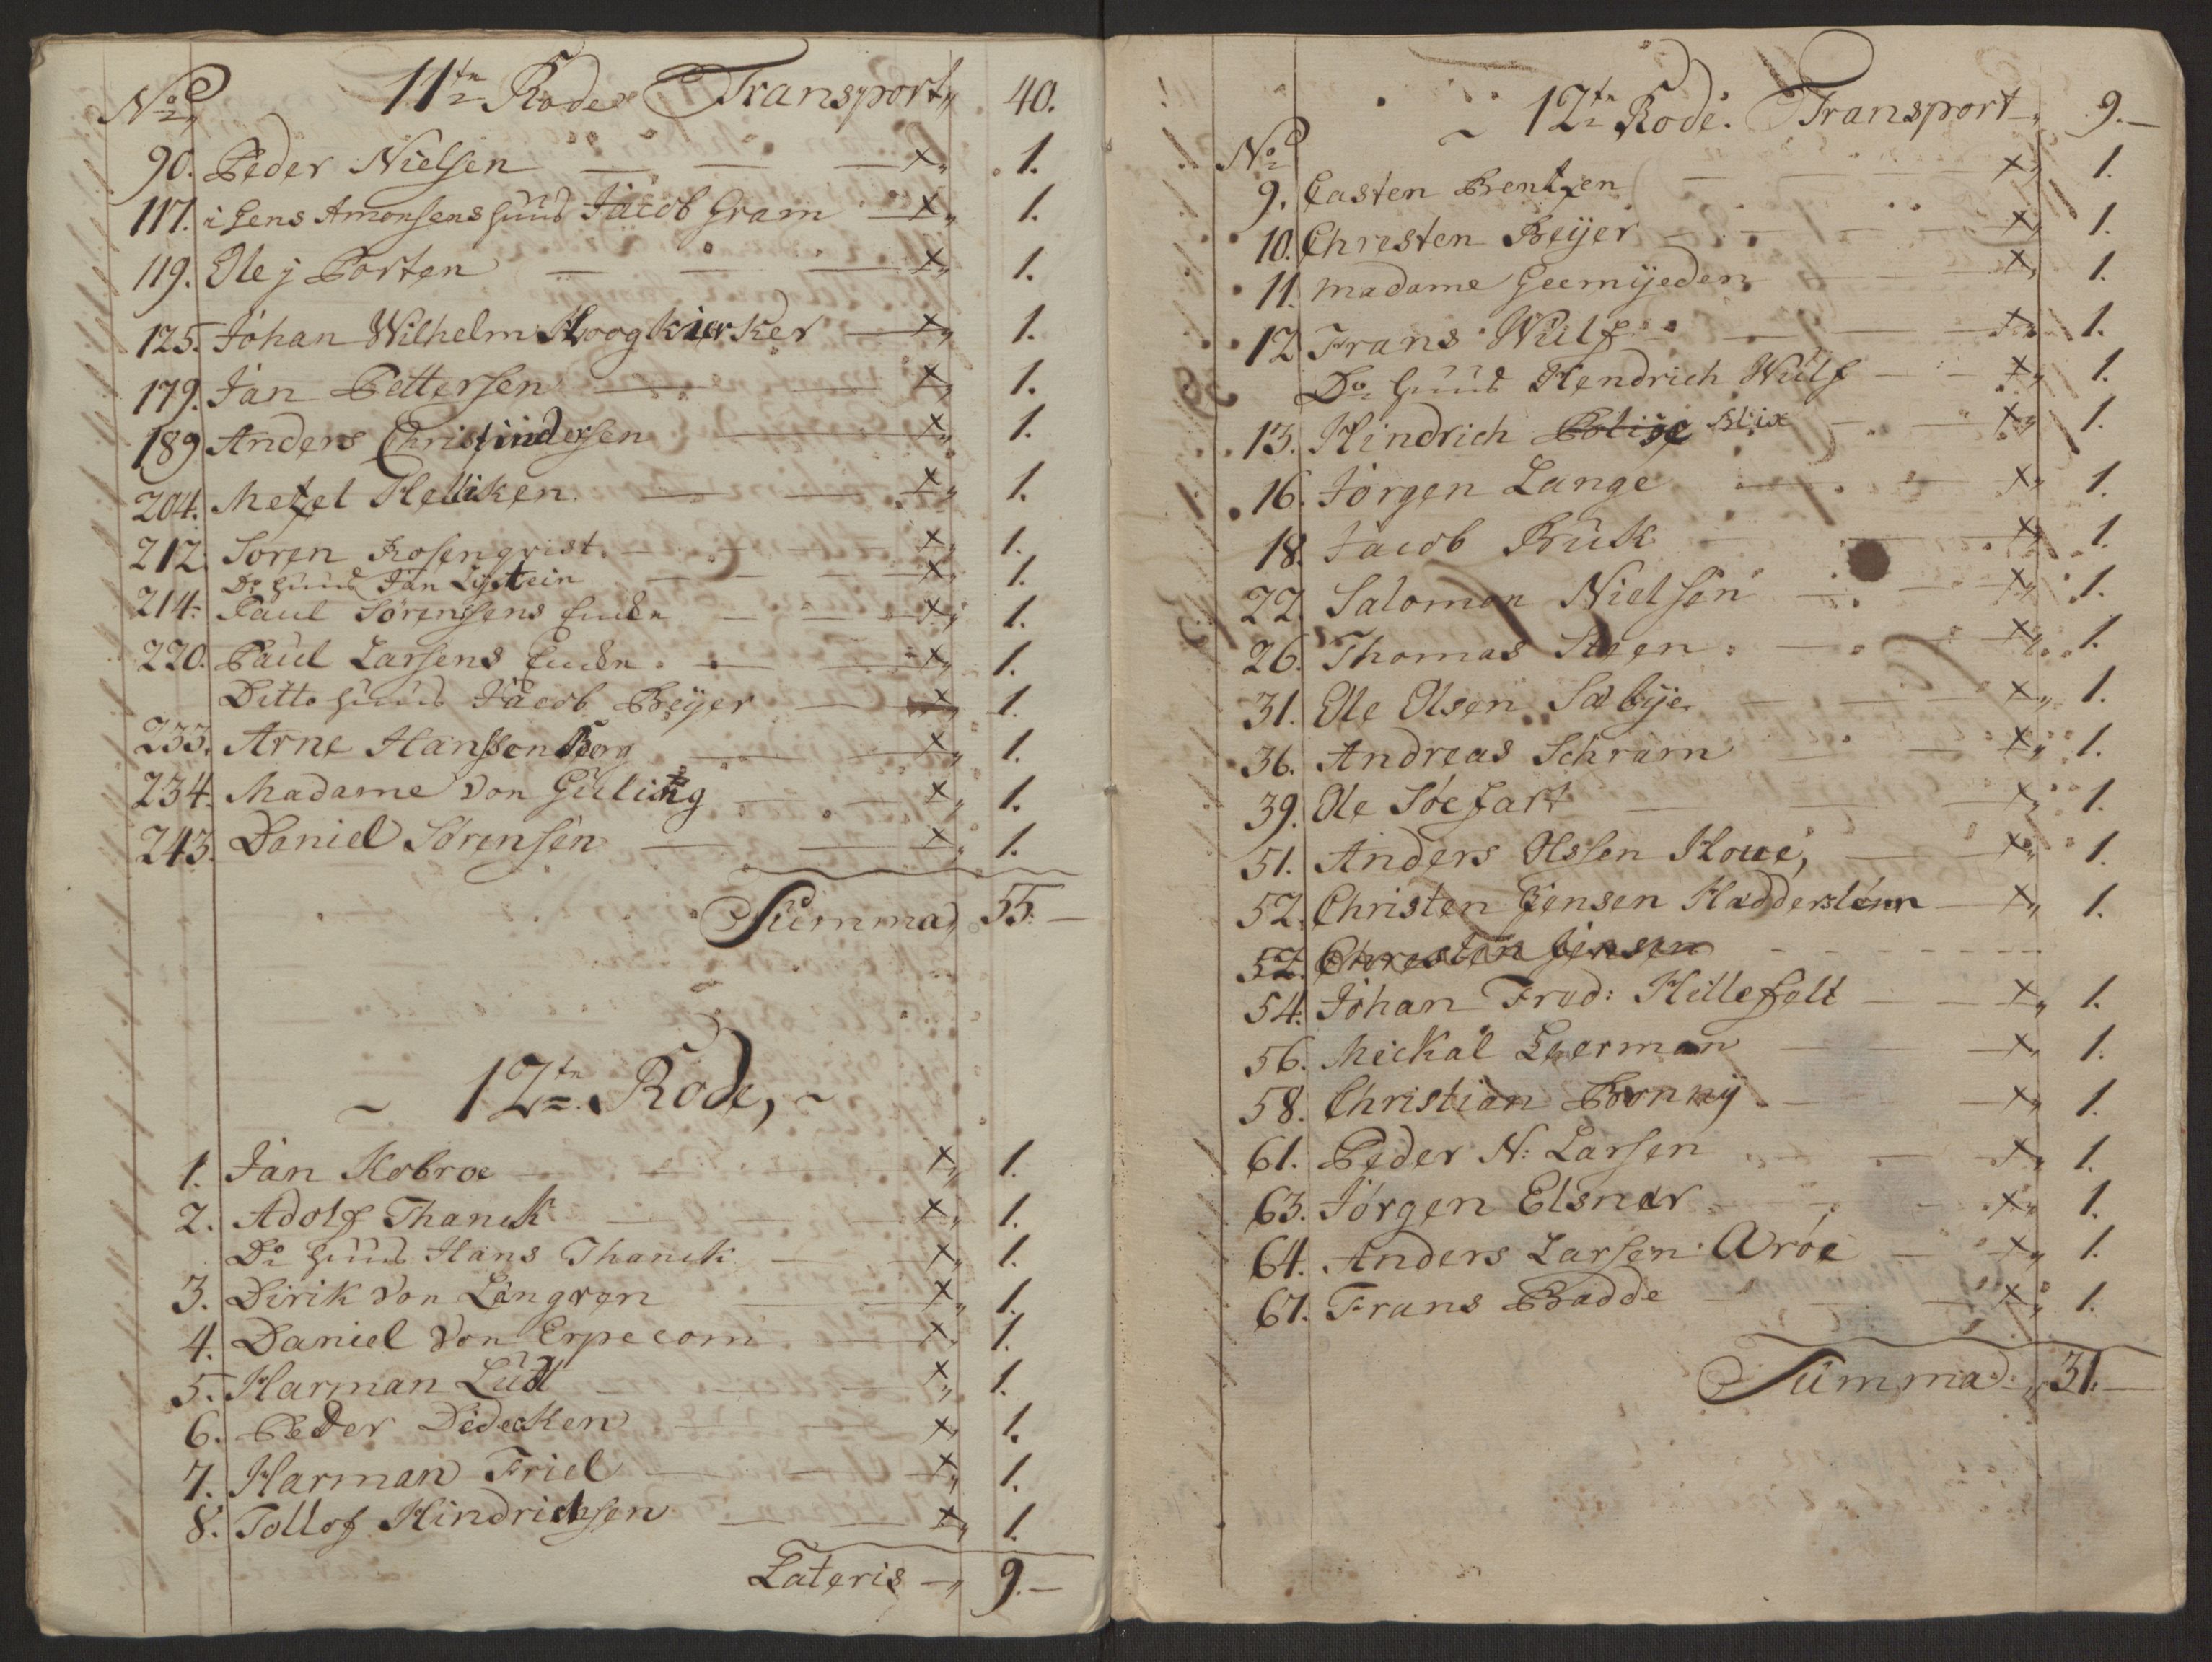 No 11te Rode Transport 40.
90. Peder Nielsen x 1.
117. i Jens Amonsens Huus Jacob Gram x 1.
119. Ole j Porten x 1.
125. Johan Wilhelm Hoogkierker x 1.
179. Jan Pettersen x 1.
189 Anders Christindersen x 1.
204. Metzel Helliken x 1.
212. Soren Rosenqvist x 1.
Do Huus Jan Lystein x 1.
214. Paul Sörenssens Encke x 1.
220. Paul Larsens Encke x 1.
Ditto Huus Jacob Beyer x 1.
233. Arne Hanssen Borg x 1.
234. Madame von Güling x 1.
243. Daniel Sörensen x 1.
Summa 55.
12te Rode,
1. Jan Kobroe x 1.
2. Adolf Thanck x 1.
Do Huus Hans Thanck x 1.
3. Dirik von Lengren x 1.
4. Daniel von Erpecom x 1.
5. Harman Lüdt x 1.
6. Peder Didecken x 1.
7. Harman Friel x 1.
8. Tollof Hindrichsen x 1.
Lateris 9.
12te Rode. Transport 9.
No
9. Casten Bentzen x 1.
10. Chresten Beyer x 1.
11. Madame Geemyeden x 1.
12 Frans Wülf x 1.
Do Huus Hendrich Wülf x 1.
13. Hindrich Blix x 1.
16. Jörgen Lange x 1.
18. Jacob Buk x 1.
22. Salomon Nielsen x 1.
26. Thomas Steen x 1.
31. Ole Olsen Sæbye x 1.
36. Andreas Schram x 1.
39. Ole Söefart x 1.
51. Anders Olssen Houe, x 1.
52. Christen Jensen Hadderslönn x 1.
52. Chresten Jensen
54. Johan Frud: Hillefelt x 1.
56. Mickal Leerman x 1.
58. Christian Bonny x 1.
61. Peder N: Larsen x 1.
63. Jörgen Elsner x 1.
64. Anders Larsen Aröe x 1.
67. Frans Badde x 1.
Summa 31.